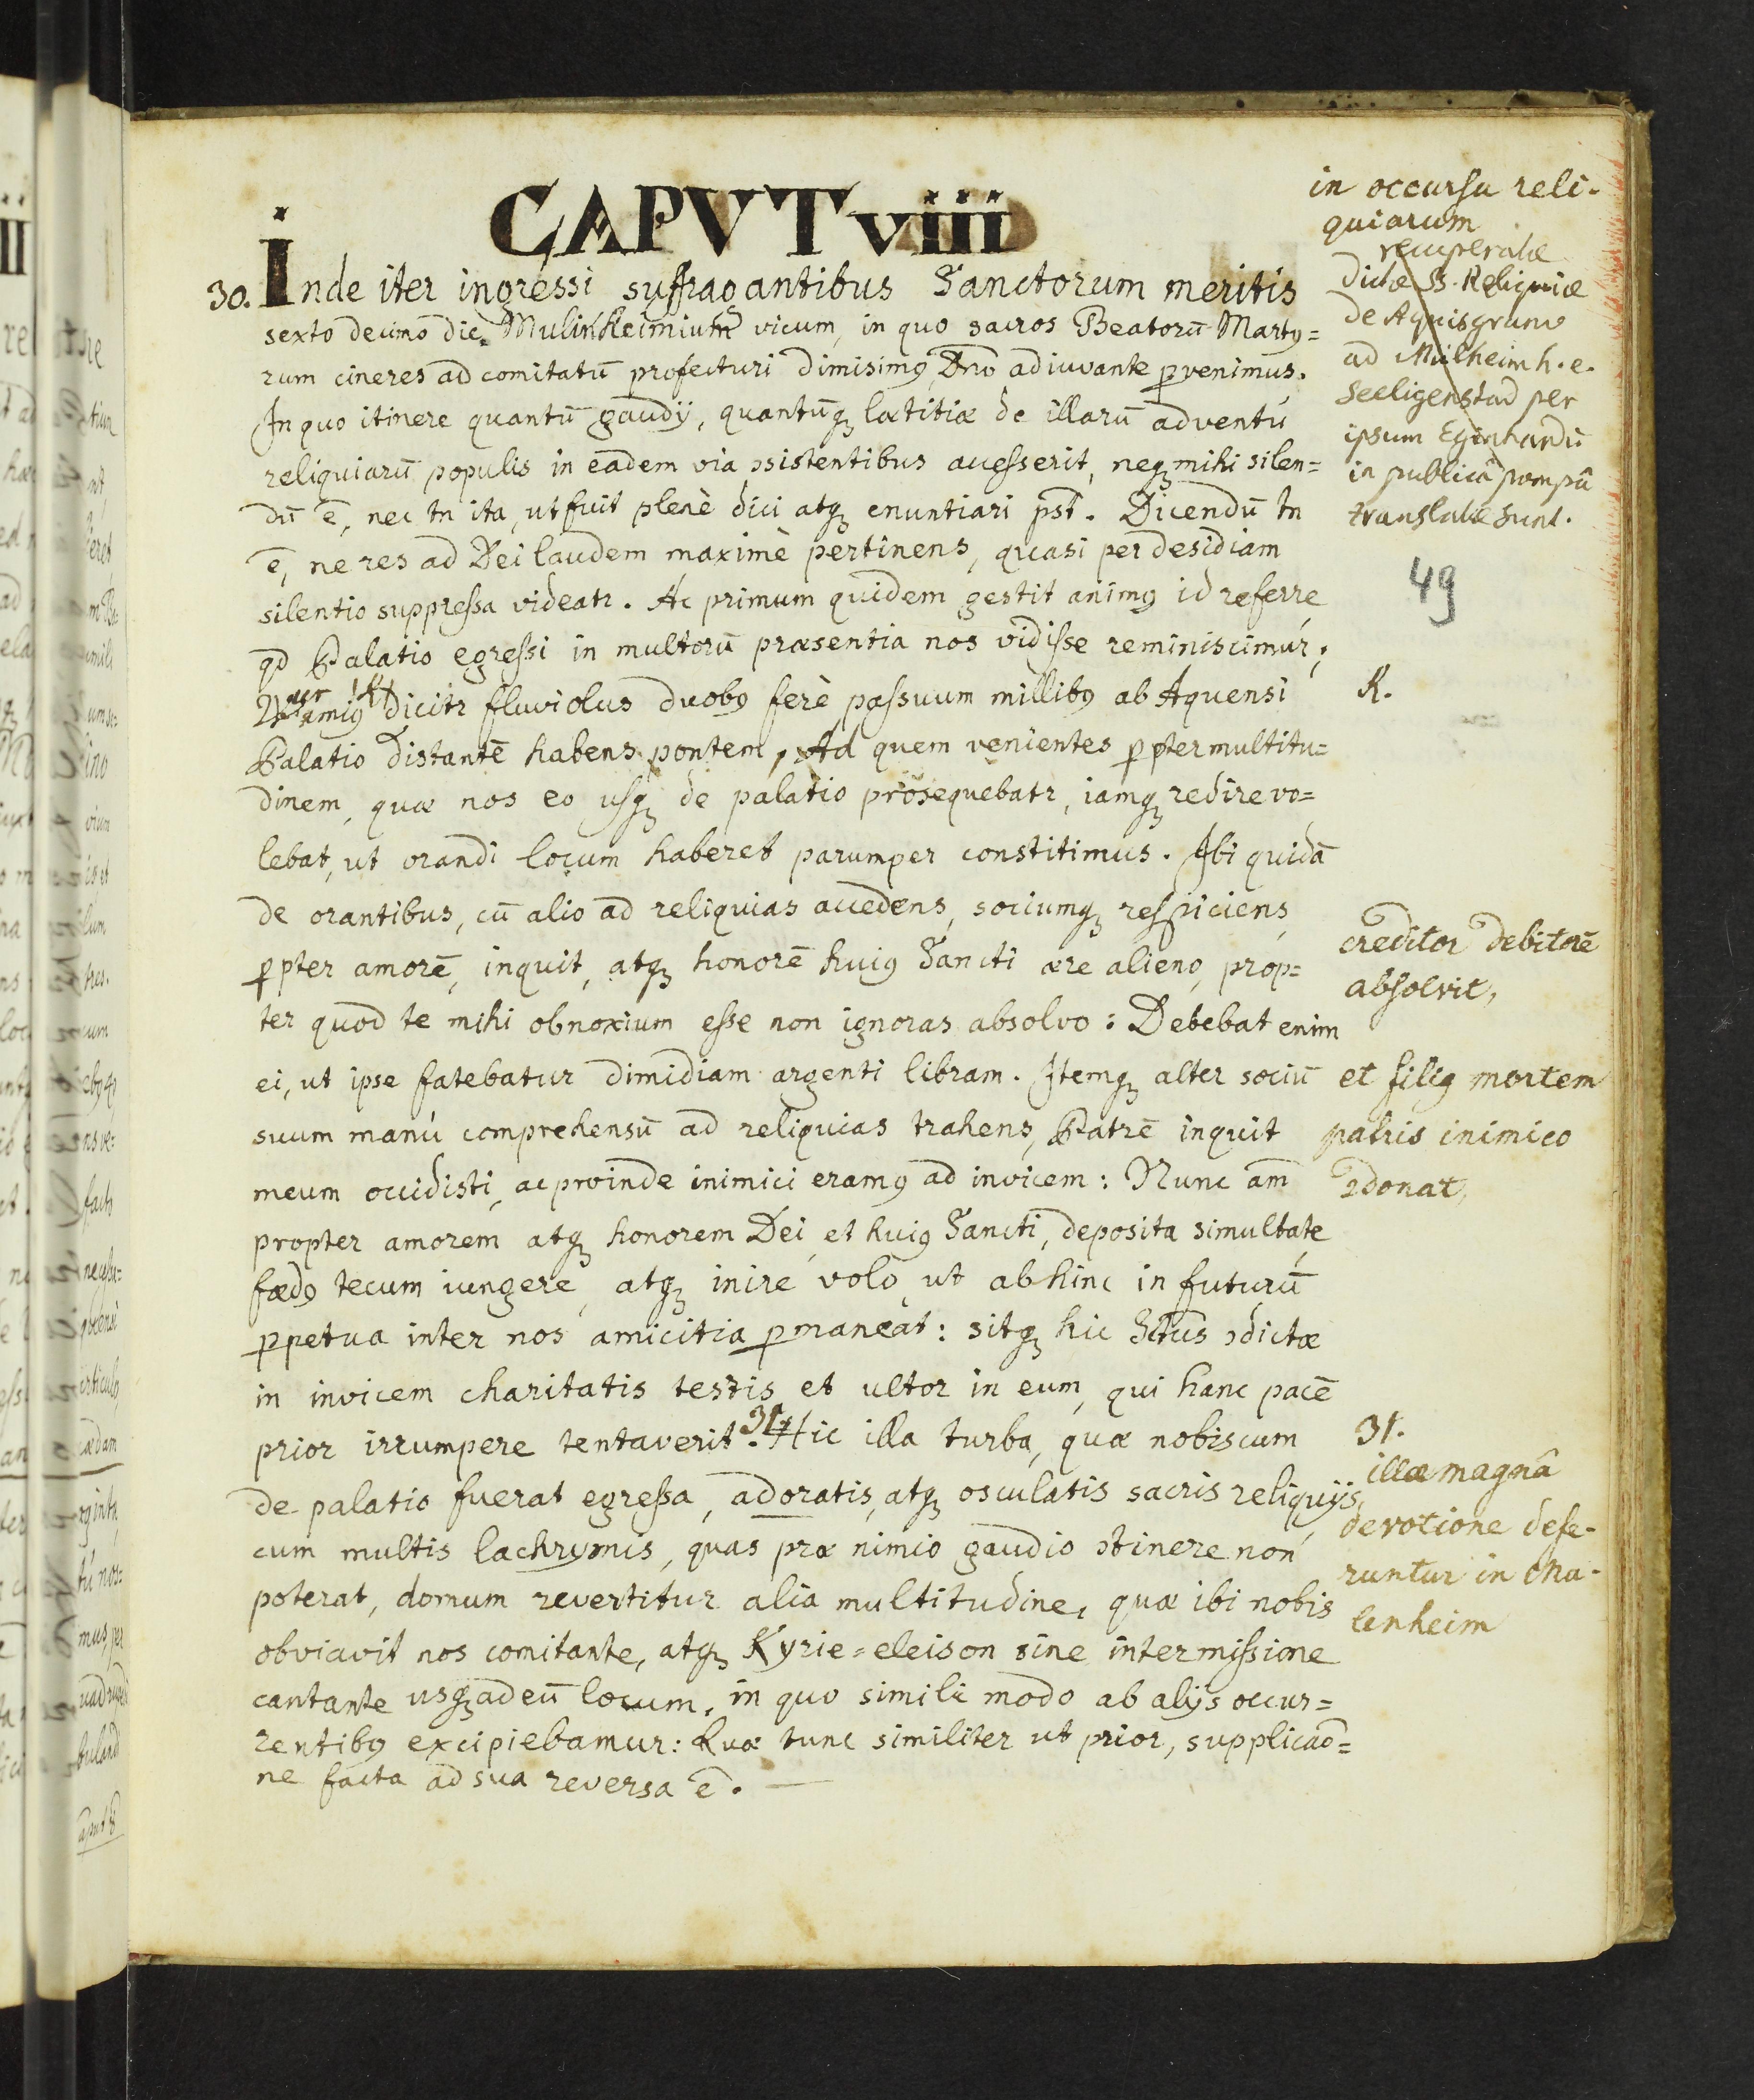 CAPVT viii
30. Inde iter ingressi suffragantibus Sanctorum meritis
sexto decimo die Mulinheimium vicum, in quo sacros Beatorū Marty=
rum cineres ad comitatū profecturi dimisimꝰ, Dno adiuvante ꝑvenimus.
In quo itinere quantū gaudij, quantūqꝫ lætitiæ de illarū adventú
reliquiarū populis in eadem via ꝯsistentibus accesserit, neqꝫ mihi silen=
dū ē, nec tn ita, ut fuit plenè dici atqꝫ enuntiari pst̄. Dicendū tn
ē, ne res ad Dei laudem maximè pertinens, quasi per desidiam
silentio suppressa videatr. Ac primum quidem gestit animꝰ id referre
qd Palatio egressi in multorū præsentia nos vidisse reminiscimúr;
dicitr fluviolus duobꝰ ferè passuum millibꝰ ab Aquensi
Palatio distantē habens pontem, Ad quem venientes ꝓpter multitu=
dinem, quæ nos eo usqꝫ de palatio prosequebatr, iamqꝫ redire vo=
lebat, ut orandi locum haberet parumper constitimus. Ibi quidā
de orantibus, cū alio ad reliquias accedens, sociumqꝫ respiciens,
ꝓpter amorē, inquit, atqꝫ honorē huiꝰ Sancti ære alieno, prop=
ter quod te mihi obnoxium esse non ignoras absolvo: Debebat enim
ei, ut ipse fatebatur dimidiam argenti libram. Itemqꝫ alter sociū
suum manú comprehensū ad reliquias trahens, Patrē inquit
meum occidisti, ac proinde inimici eramꝰ ad invicem: Nunc am̄
propter amorem atqꝫ honorem Dei, et huiꝰ Sancti, deposita simultate,
fædꝰ tecum iungere, atqꝫ inire volo, ut abhinc in futurū
ꝑpetua inter nos amicitia ꝑmaneat: sitqꝫ hic Sctus ꝯdictæ
in invicem charitatis testis et ultor in eum, qui hanc pacē
prior irrumpere tentaverit. 31. Hic illa turba, quæ nobiscum
de palatio fuerat egressa, adoratis, atqꝫ osculatis sacris reliquijs,
cum multis lachrymis, quas præ nimio gaudio ꝯtinere non
poterat, domum revertitur alia multitudine, quæ ibi nobis
obviavit nos comitante, atqꝫ Kyrie=eleison sine intermissione
cantante usqꝫ ad eū locum, in quo simili modo ab alijs occur=
rentibꝰ excipiebamur: Quæ tunc similiter ut prior, supplicao=
ne facta ad sua reversa ē.
in occursu reli-
quiarum
recuperatæ
Dictæ SS. Reliquiæ
de Aquisgrano
ad Mülheim h. e.
Seeligenstad per
ipsum Eginhardū
in publicâ pompâ
translatæ sunt.
49
R.
creditor debitorē
absolvit,
et filiꝰ mortem
patris inimico
ꝯdonat,
31.
illæ magnâ
devotione defe-
runtur in Ma-
lenheim